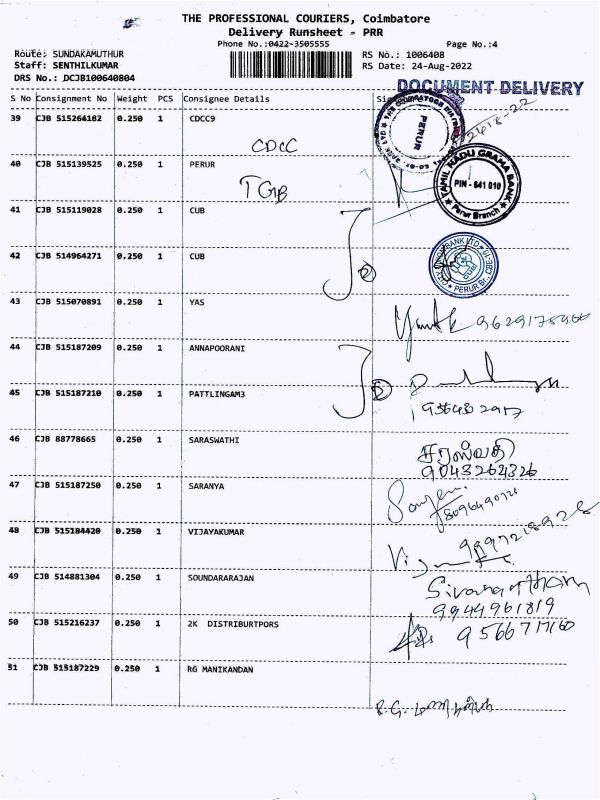 THE PROFESSIONAL COURIERS, Coimbatore
Delivery Runsheet - PRR
Phone No.:0422-3505555
Page No.:4
Route: SUNDAKAMUTHUR
RS No.: 1006408
Staff: SENTHILKUMAR
RS Date: 24-Aug-2022
DRS No.: DCJB100640804
DOCUMENT DELIVERY
S No Consignment No Weight PCS Consignee Details
39 CJB 515264182 0.250 1 CDCC9
CDCC
PERUR
40 CJB 515139525 0.250 1 PERUR
TGB
TAMIL NADU GRAMA BANK
PIN - 641 010
Perur Branch
41 CJB 515119028 0.250 1 CUB
42 CJB 514964271 0.250 1 CUB
2
CUB
43 CJB 515070891 0.250 1 YAS
44 CJB 515187209 0.250 1 ANNAPOORANI
45 CJB 515187210 0.250 1 PATTLINGAM3
46 CJB 88778665 0.250 1 SARASWATHI
சரஸ்வதி
9043264326
47 CJB 515187250 0.250 1 SARANYA
48 CJB 515184420 0.250 1 VIJAYAKUMAR
49 CJB 514881304 0.250 1 SOUNDARARAJAN
9944961819
50 CJB 515216237 0.250 1 2K DISTRIBURTPORS
9566717160
51 CJB 515187229 0.250 1 RG MANIKANDAN